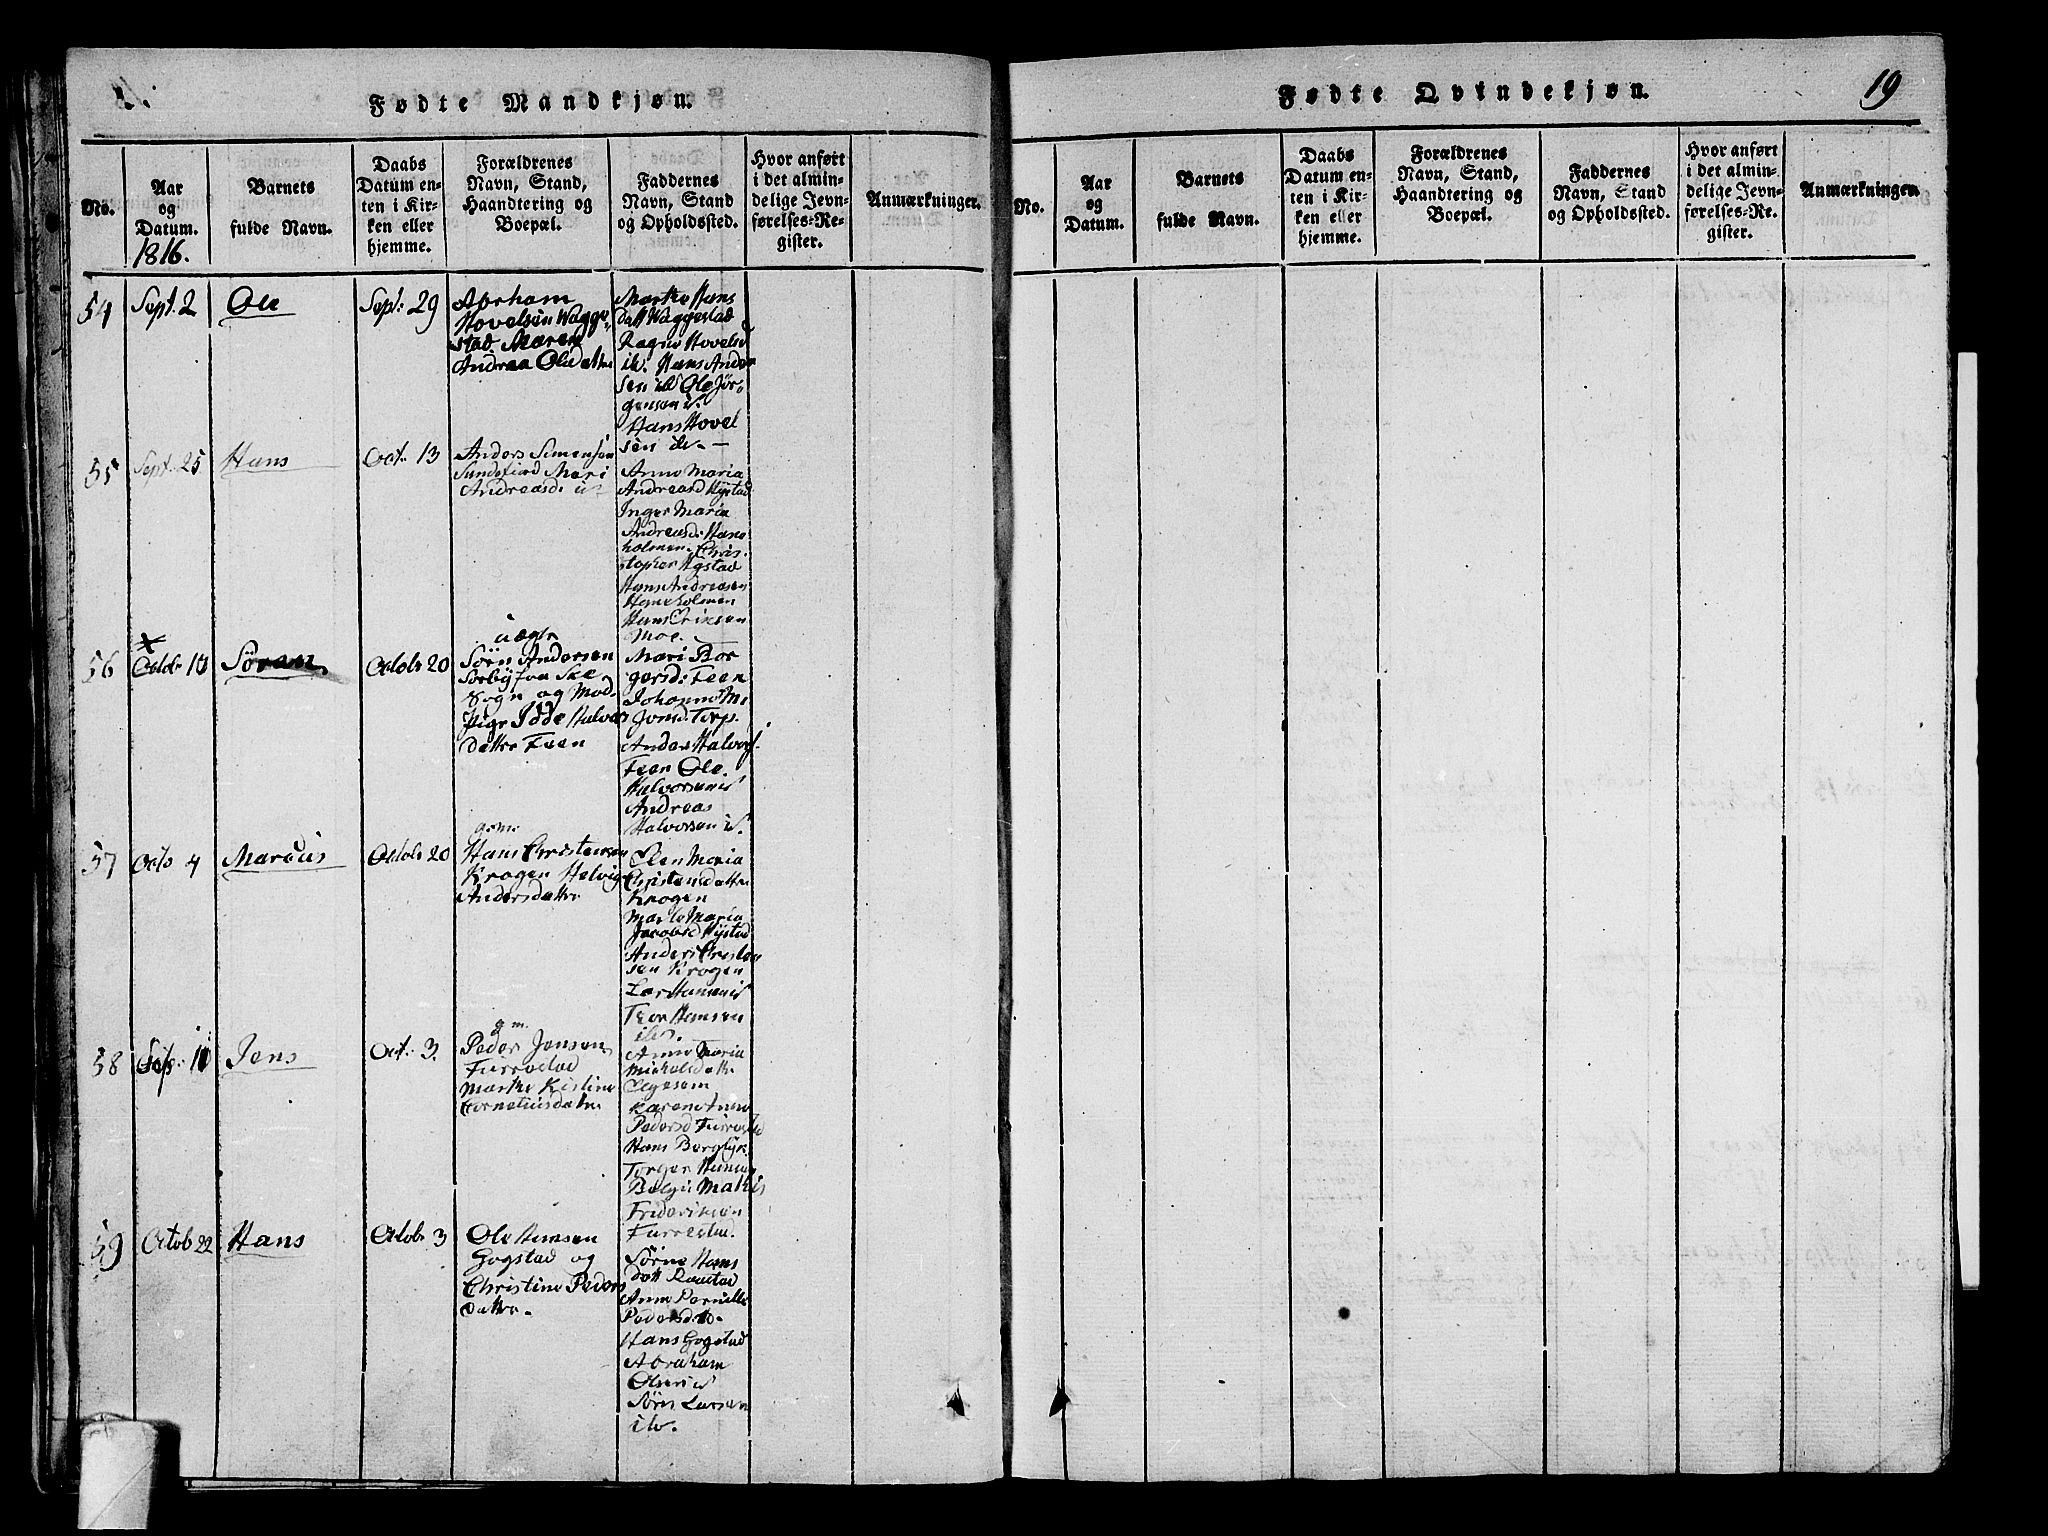 Fødte Mandkjøn.
No.
Aar
og
Datum.
1816.
Barnets
fulde Navn.
Daabs
Datum en-
ten i Kir-
ken eller
hjemme.
Forældrenes
Navn, Stand,
Haandtering og
Boepæl.
Faddernes
Navn, Stand
og Opholdssted.
Hvor anført
i det almin-
delige Jevn-
førelses-Re-
gister.
Anmærkninger.
54
Sept. 2
Ole
Sept: 29
Abrham
Hovelsen Wagge-
stad Maren
Andrea Oledatter
Marthe Hans
datt Waggestad
Ragne Hovelsd
ib. Hans Ander
sen ib Ole Jør-
gensen ib.
Hans Hovel
sen ib. —
55
Sept. 25
Hans
Oct: 13
Anders Simensen
Sundefiord Mari
Andreasd:
Anne Maria
Andreasd Hystad
Inger Maria
Andreasd: Hane
holmen. Chris-
stopher Hystad
Hans Andreasen
Haneholmen
Hans Eriksen
Moe.
56
Octobr 10
Søren
Octobr 20
uægte
Sørn Andersen
Sorby fra Ske
Sogn og Mod.
Pige Idde Halvors
datter Feen
Mari Bor
gersd: Feen
Johanne M:
Jonsd: Torp.
Anders Halvors.
Feen Ole
Halvorsen ib
Andreas
Halvorsen ib.
57
Octo 4
Marcus
Octobr 20
gm:
Hans Christensen
Krogen Helvig
Andersdatter
Elen Maria
Christensdatter
Krogen
Marte Maria
Jacobsd Hystad
Anders Christen
sen Krogen
Lar Hansen ib
Thor Hansen
ib.
58
Sep: 10
Jens
Oct: 3.
gm.
Peder Jensen
Furrestad
Marthe Kistine
Corneliusdatter
Anne Maria
Michelsdatter
Elgesem
Karen Anne
Pedersd Furrestad
Hans Berg
Torger Hansen
Mathis
Frideriksen
Furrestad.
59
Octob 22
Hans
Octobr 3
Ole Hansen
Gogstad og
Christine Peders
datter.
Sørne Hans
datt Raastad
Anne Pernille
Pedersd ib.
Hans Gogstad
Abraham
Olsen ib
Sørn Larsen
ib.
Fødte Qvindekjøn.
19
No.
Aar
og
Datum.
Barnets
fulde Navn.
Daabs
Datum en-
ten i Kir-
ken eller
hjemme.
Forældrenes
Navn, Stand,
Haandtering og
Boepæl.
Faddernes
Navn, Stand
og Opholdssted.
Hvor anført
i det almin-
delige Jevn-
førelses-Re-
gister.
Anmærkninger.